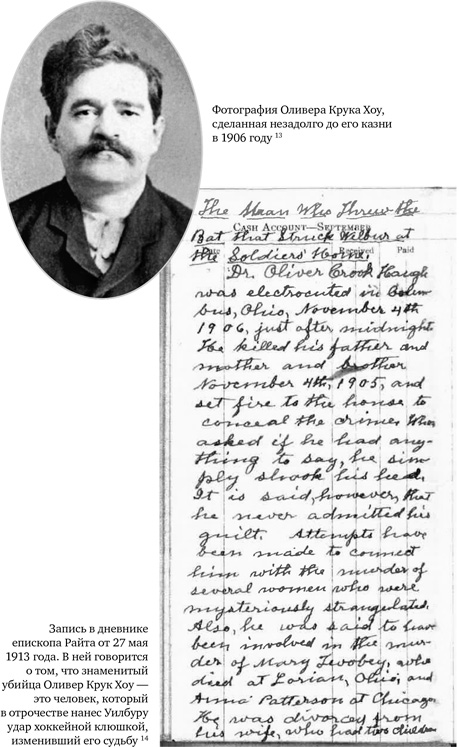 Фотография Оливера Крука Хоу,
сделанная незадолго до его казни
в 1906 году 13
The Maan Who Threw the
CASH ACCOUNT—SEPTEMBER
Bat that Struck Wilbur at
Date Received Paid
the Soldiers Home.
Dr. Oliver Crook Haugh
was electrocuted in Colum-
bus, Ohio, November 4th
1906, just after midnight
He killed his father and
mother and brother
November 4th, 1905, and
set fire to the house to
conceal the crime. When
asked if he had any-
thing to say, he sim-
ply shook his head.
It is said, however, that
he never admitted his
guilt. Attempts have
been made to connect
him with the murder of
several women who were
mysteriously strangulated.
Also, he was said to have
been involved in the mur-
der of Mary Twobey, who
died at Lorian, Ohio, and
Anna Patterson at Chicago.
He was divorced from
his wife, who had two children
Запись в дневнике
епископа Райта от 27 мая
1913 года. В ней говорится
о том, что знаменитый
убийца Оливер Крук Хоу —
это человек, который
в отрочестве нанес Уилбуру
удар хоккейной клюшкой,
изменивший его судьбу 14